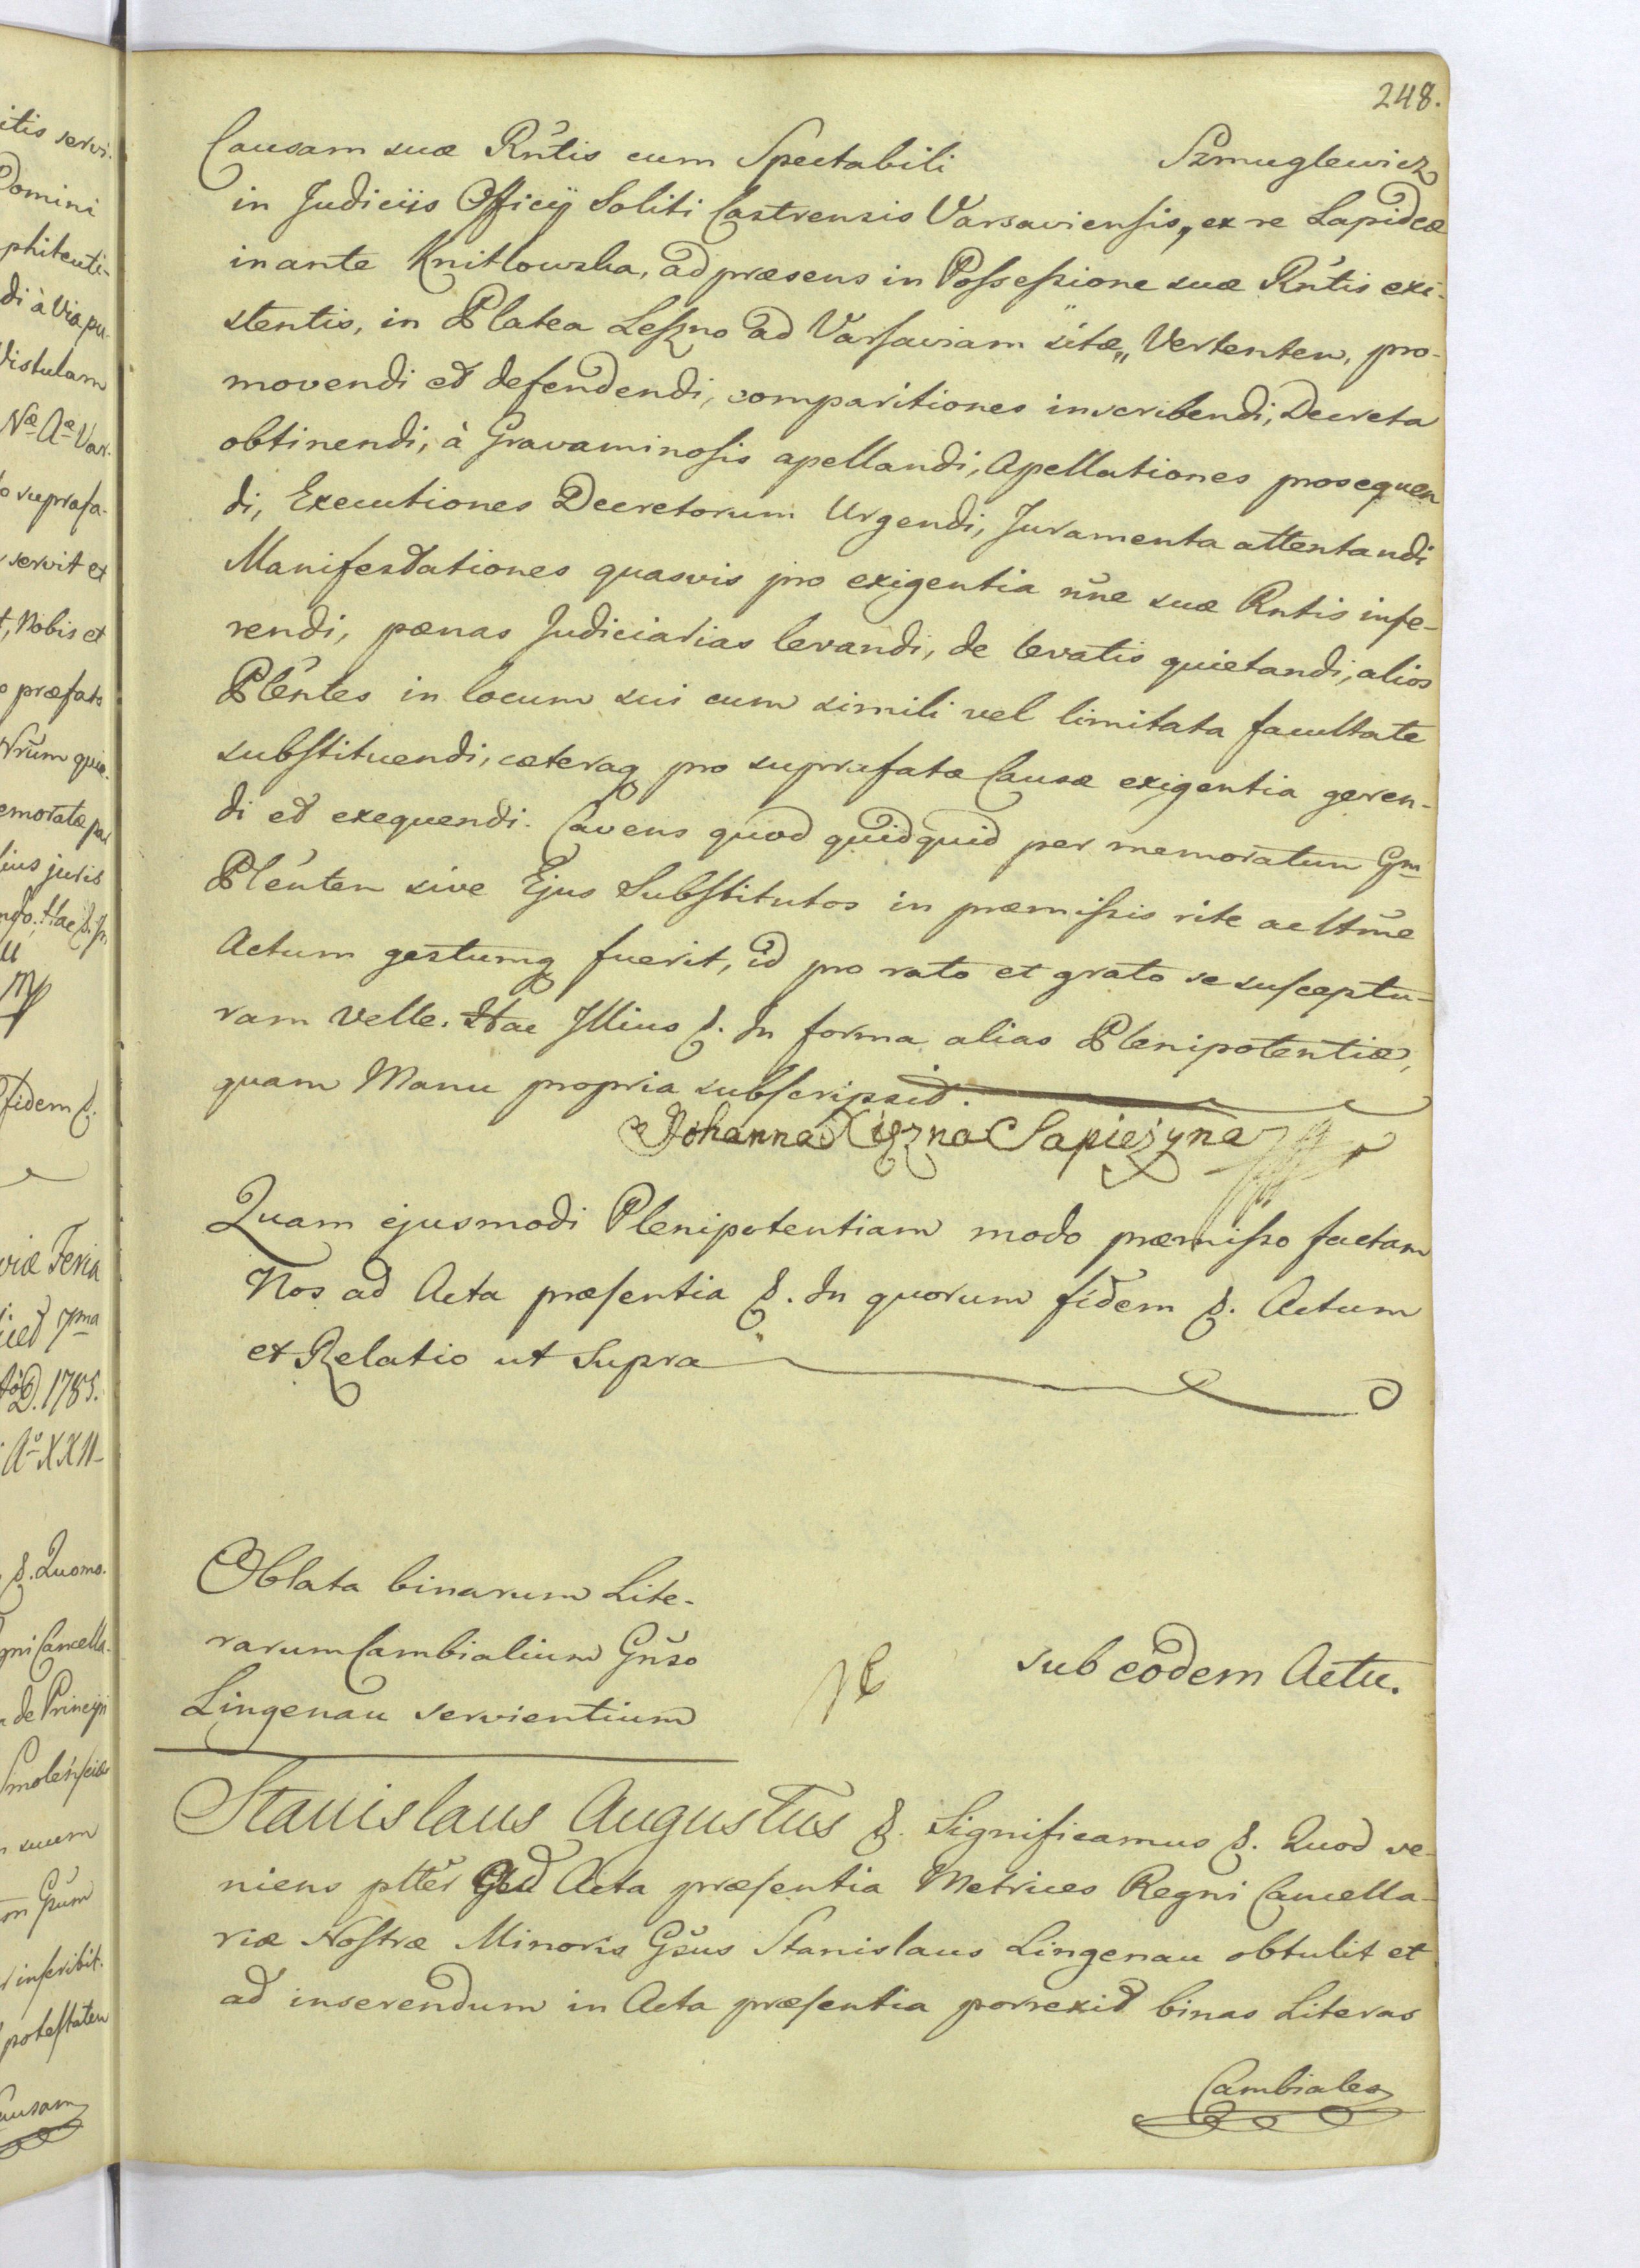 248.
Causam suæ Rñtis cum Spectabili Szmuglewicz
in Judiciis Officÿ Soliti Castrensis Varsaviensis, ex re Lapideæ
in ante Knitlowska, ad præsens in Possessione suæ Rñtis exi-
stentis, in Platea Leszno ad Varsaviam sitæ,, Vertenten, pro-
movendi et defendendi, comparitiones inscribendi, Decreta
obtinendi, à Gravaminosis apellandi, Apellationes prosequen
di, Executiones Decretorum Urgendi, Juramenta attentandi
Manifestationes quasvis pro exigentia nñe suæ Rntis infe-
rendi, pænas Judiciarias levandi, de levatis quietandi, alios
Pleñtes in locum sui cum simili vel limitata facultate
substituendi, cæteraq pro suprafatæ Causæ exigentia geren-
di et exequendi. Cavens quod quidquid per memoratum Gm
Pleñten sive Ejus Substitutos in præmissis rite ac ltm̃e
Actum gestumq fuerit, id pro rato et grato se susceptu-
ram velle. Hac Illius &. In forma alias Plenipotentiæ,
quam Manu propria subscripsit.
Johanna Xięzna Sapieżyna
Quam ejusmodi Plenipotentiam modo præmisso factam
Nos ad Acta præsentia &. In quorum fidem &. Actum
et Relatio ut Supra
Oblata binarum Lite-
rarum Cambialium Gñso
Lingenau servientium
sub eodem Actu.
Stanislaus Augustus &. Significamus &. Quod ve-
niens ptter Ad Acta præsentia Metrices Regni Cancella-
riæ Nostræ Minoris Gsus Stanislaus Lingenau obtulit et
ad inserendum in Acta præsentia porrexit binas Literas
Cambiales